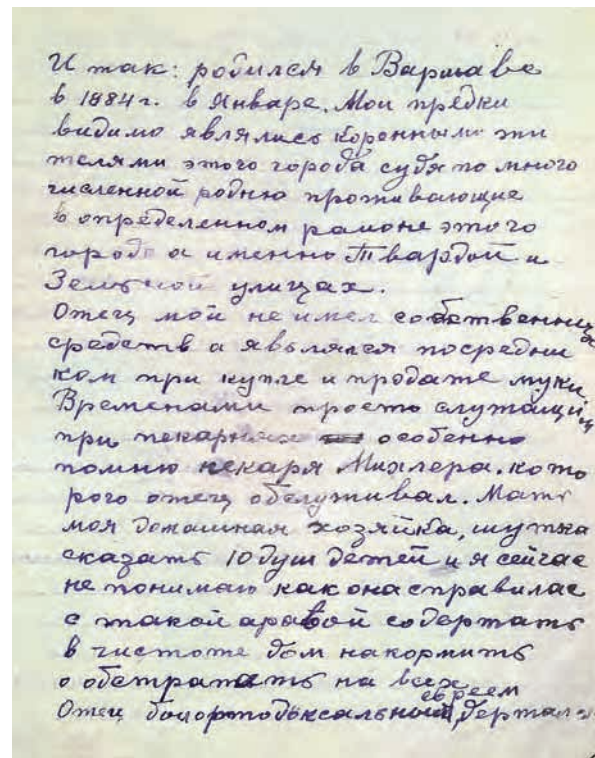 И так: родился в Варшаве
в 1884 г. в Январе. Мои предки
видимо являлись коренными жи
телями этого города судя по много
численной родню проживающие
в определенном районе этого
города а именно Твардой и
Зельной улицах.
Отец мой не имел собственных
средств а являлся посредни
ком при купле и продаже муки.
Временами просто служащим
при пекарнях особенно
помню пекаря Михлера. кото
рого отец обслуживал. Мать
моя домашная хозяйка, шутка
сказать 10 душ детей и я сейчас
не понимаю как она справилас
с такой аравой содержать
в чистоте дом накормить
о обстратать на всех
евреем
Отец был ортодоксальный, держал